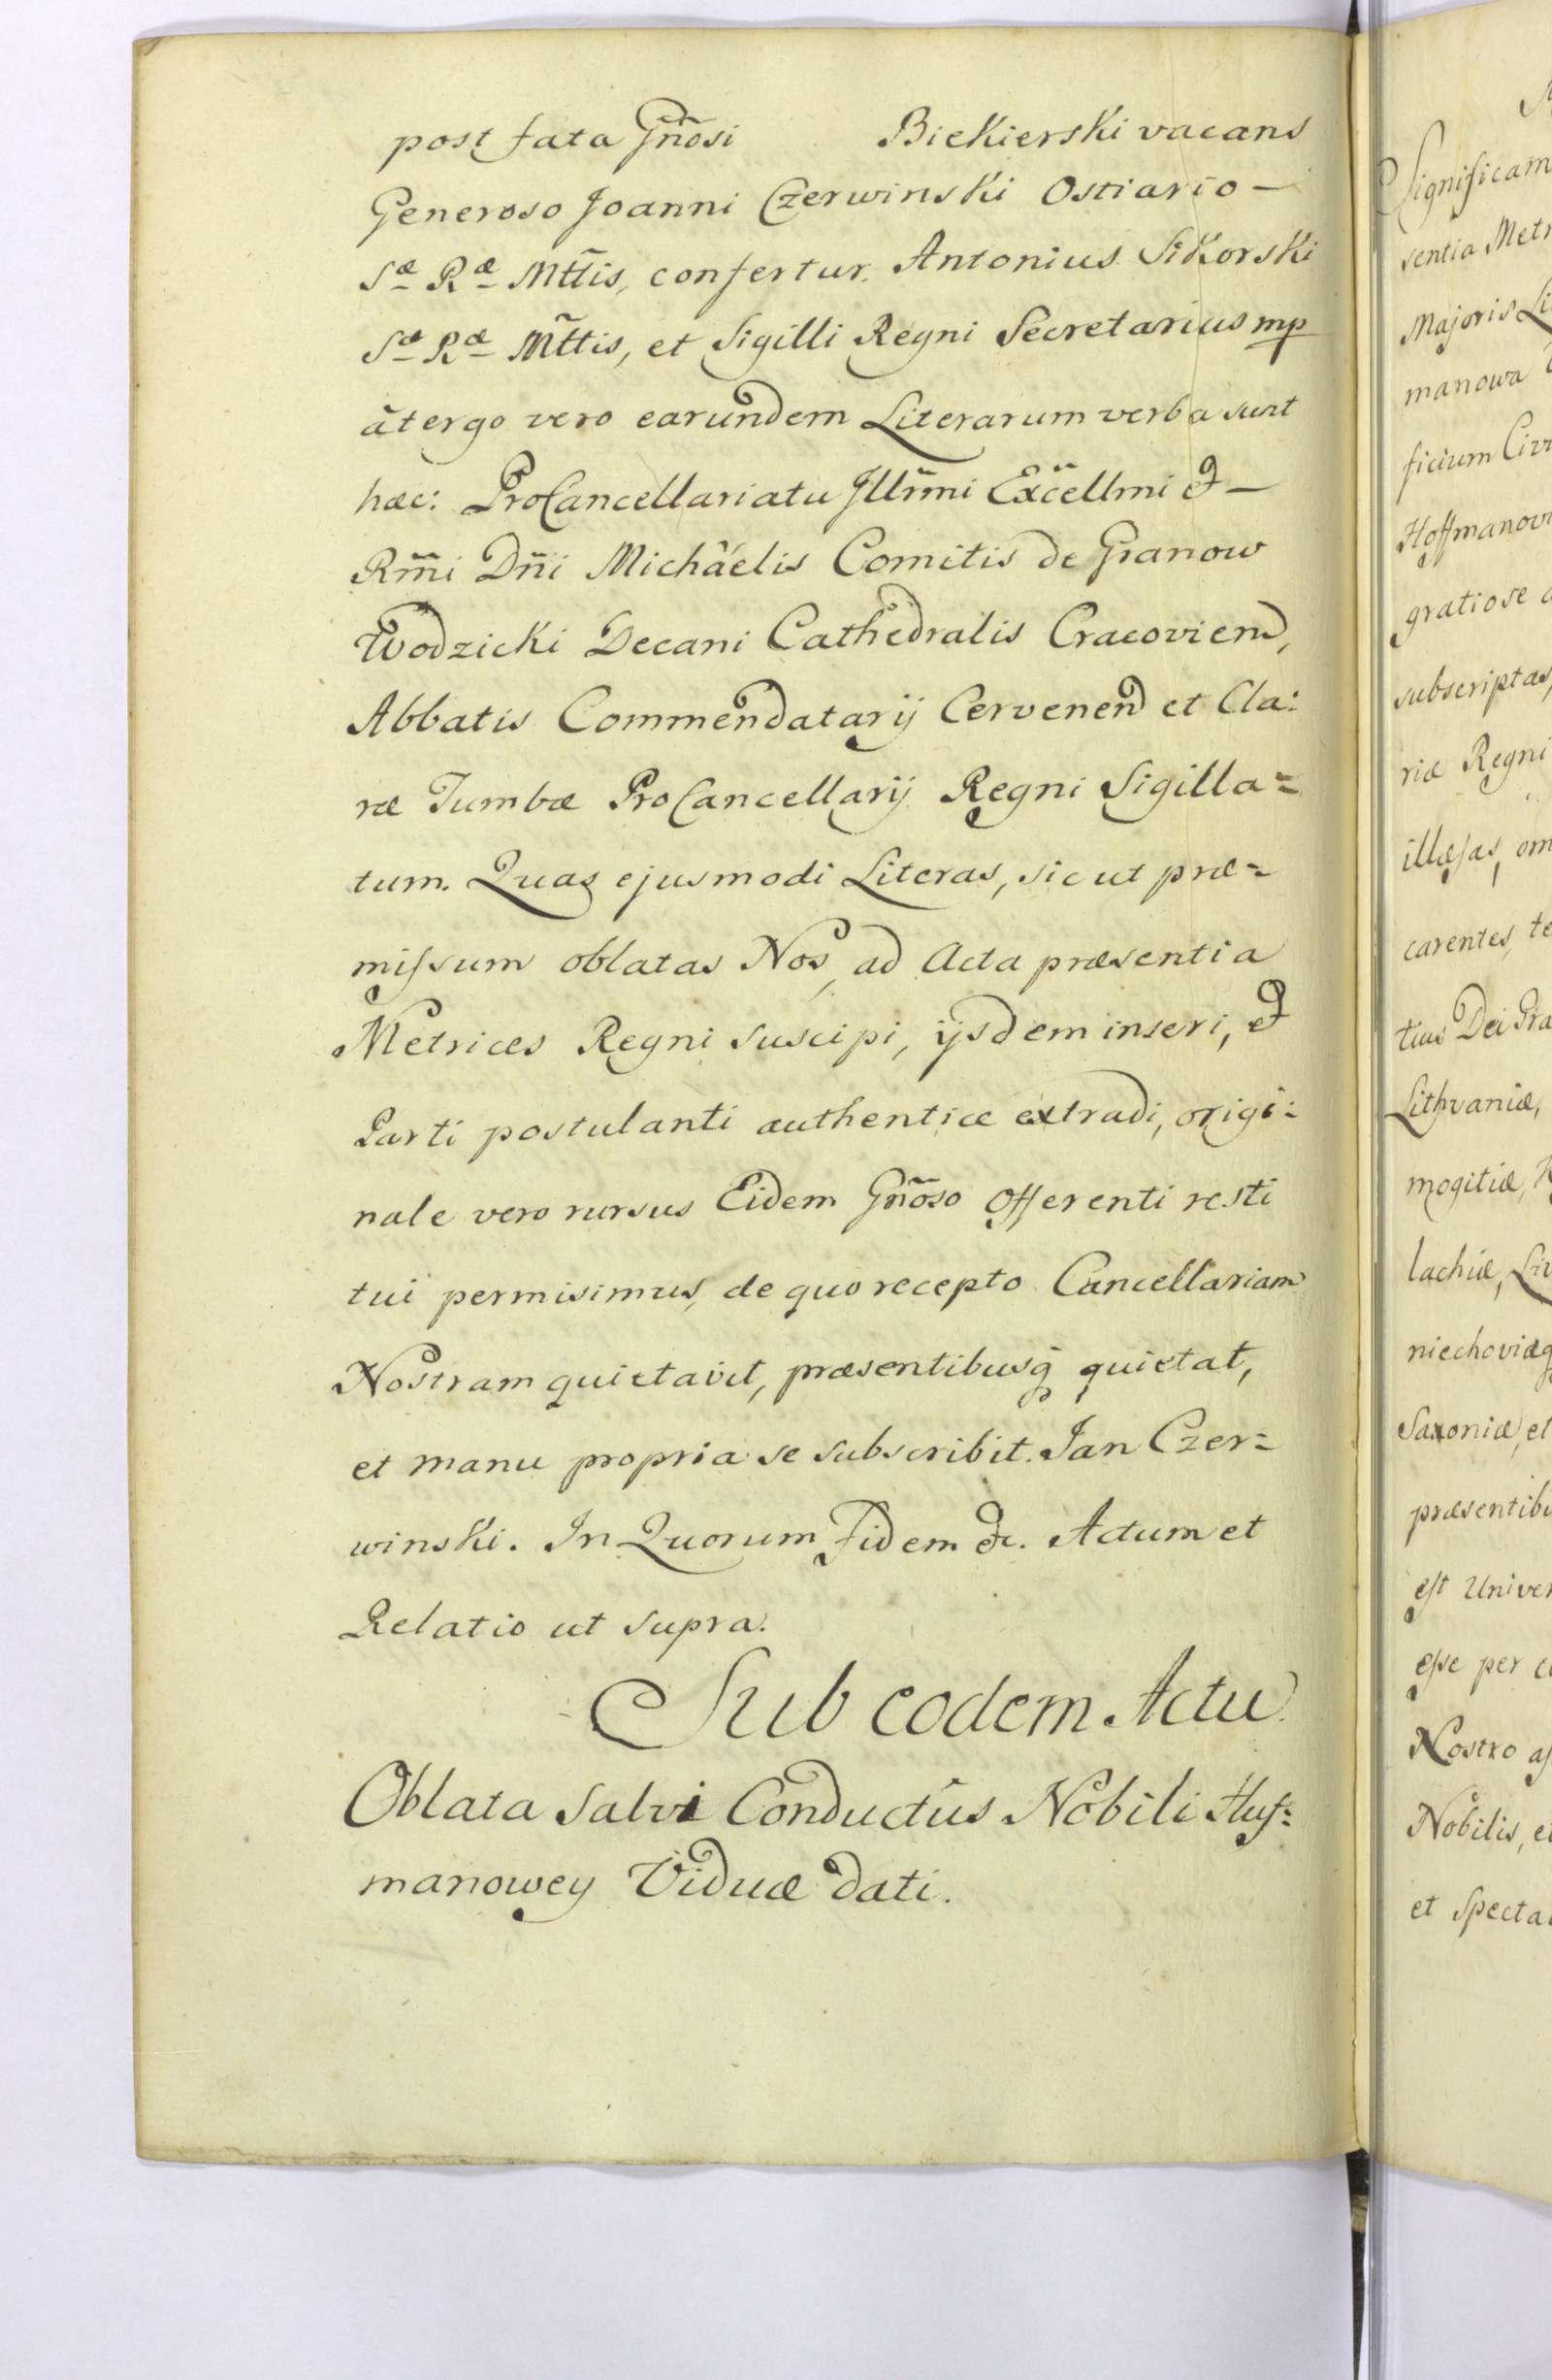 post fata Gñosi Biekierski vacans
Generoso Joanni Czerwinski Ostiario —
Sæ Ræ Mttis, confertur. Antonius Sikorski
Sæ Ræ Mttis, et Sigilli Regni Secretarius mp
àtergo vero earundem Literarum verba sunt
hæc: ProCancellariatu Jllr̃mi Exc̃ellmi et —
Rm̃i Dñi Michaelis Comitis de Granow
Wodzicki Decani Cathedralis Cracovien,
Abbatis Commendatarij Cervenen et Cla:
ræ Tumbæ ProCancellarij Regni Sigilla=
tum. Quas ejusmodi Literas, sic ut præ=
missum oblatas Nos, ad Acta præsentia
Metrices Regni suscipi, ijsdem inseri, et
Parti postulanti authenticæ extradi, origi=
nale vero rursus Eidem Gñoso Offerenti resti
tui permisimus, de quo recepto Cancellariam
Nostram quietavit, præsentibusq̃ quietat,
et manu propria se subscribit. Jan Czer=
winski. In Quorum Fidem &c. Actum et
Relatio ut supra.
Sub eodem Actu
Oblata Salvi Conductûs Nobili Huf=
manowey Viduæ dati.
Significam
sentia Metr
Majoris Li
manowa
ficium Civi
Hoffmanow
gratiose
subscriptas,
riæ Regni
illæsas, om
carentes, te
tius Dei Gra
Lithvaniæ,
mogitiæ,
lachiæ, Liv
niechoviæq
Saxoniæ, et
præsentibu
est Univer
esse per
Nostro as
Nobilis, et
et Specta